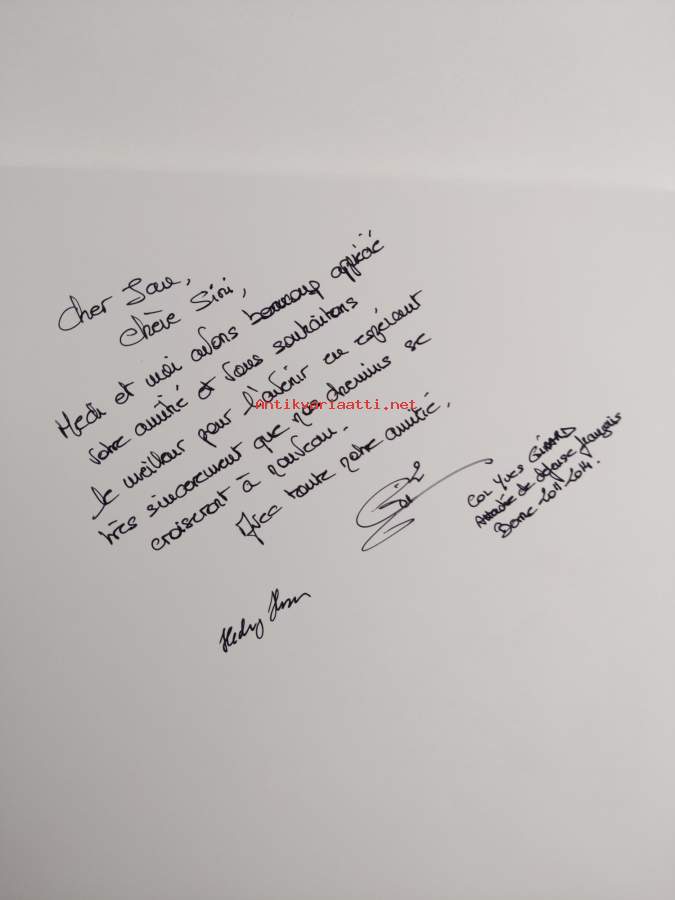 Cher
Chère Siri,
et moi avons beaucoup apprécié
votre amitié et vous souhaitons
le meilleur pour l'avenir en espérant
très sincèrement que nos chemins se
croiseront à nouveau.
Avec toute notre amitié.
Antikvariaatti.net
Col Yves GIRARD
Attaché de défense français
Berne 2011-2014.